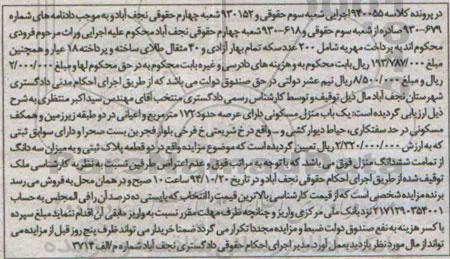 در پرونده کلاسه ۹۴۰۰۵۵ اجرایی شعبه سوم حقوقی و ۹۳۰۱۵۲ شعبه چهارم حقوقی نجف آباد و به موجب دادنامه های شماره
۹۳۰۰۶۷۹ صادره از شعبه سوم حقوقی و ۹۳۰۰۶۱۸ شعبه چهارم حقوقی نجف آباد محکوم علیه اجرایی وراث مرحوم فرودی
محکوم اند به پرداخت مهریه شامل ۲۰۰ عدد سکه تمام بهار آزادی و ۴۰ مثقال طلای ساخته و پرداخته ۱۸ عیار و همچنین
مبلغ ۱۹۳/۷۸۷/۰۰۰ ریال بابت محکوم به و هزینه های دادرسی و غیره بابت محکوم به در حق محکوم لها و مبلغ ۲/۰۰۰/۰۰۰
ریال و مبلغ ۸/۵۰۰/۰۰۰ ریال نیم عشر دولتی در حق صندوق دولت می باشد که از طریق اجرای احکام مدنی دادگستری
شهرستان نجف آباد مال ذیل توقیف و توسط کارشناس رسمی دادگستری منتخب آقای مهندس سید اکبر منتظری به شرح
ذیل ارزیابی گردیده است: یک باب منزل مسکونی دارای عرصه حدود ۱۷۲ مترمربع و اعیانی در دو طبقه زیرزمین و همکف
مسکونی در حد سفتکاری، حیاط دیوار کشی و... واقع در خ شریعتی خ فرخی بلوار فجر بن بست صحرا و دارای سوابق ثبتی
که به ارزش ۲/۳۳۰/۰۰۰/۰۰۰ ریال تعیین گردیده است که موضوع مزایده واقع در دو قطعه پلاک ثبتی و به میزان سه دانگ
از تمامت ششدانگ منزل فوق می باشد که با توجه به مراتب فوق و عدم اعتراض طرفین نسبت به نظریه کارشناسی ملک
توقیف شده از طریق اجرای احکام حقوقی نجف آباد در تاریخ ۹۴/۱۰/۲۰ ساعت ۱۰ صبح و در همان محل به فروش می رسد
برنده مزایده شخصی است که از قیمت کارشناسی بالاترین قیمت را انتخاب که بایستی ده درصد آن را فی المجلس به حساب
۲۱۷۱۲۹۰۳۵۳۰۰۱ نزد بانک ملی مرکزی واریز و چنانچه ظرف مهلت مقرر نسبت به واریز مابقی آن اقدام ننماید مبلغ سپرده
با کسر هزینه به نفع صندوق دولت ضبط و مزایده مجددا تکرار می گردد ضمنا خریدار می تواند ظرف پنج روز قبل از مزایده می
تواند از مال مورد نظر بازدید بعمل آورد. مدیر اجرای احکام حقوقی دادگستری نجف آباد شماره م/الف ۳۷۱۴